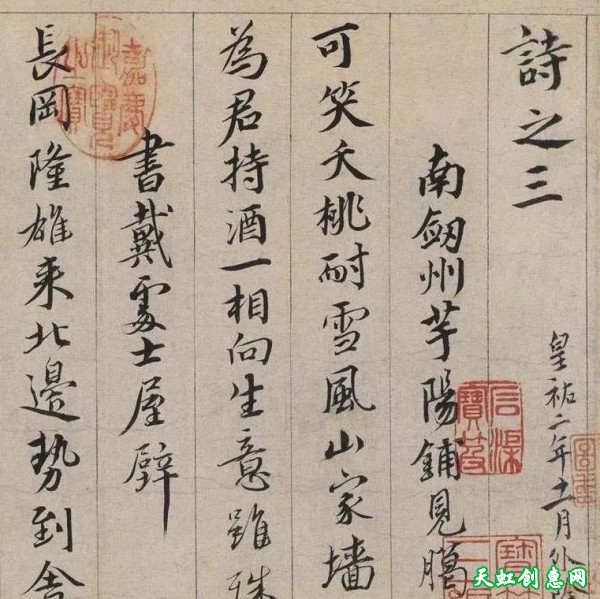 詩之三
皇祐二年十一月外
南劔州芋陽鋪見臈
可笑夭桃耐雪風山家墻
為君持酒一相向生意雖殊
書戴處士屋壁
長岡隆雄来北邊勢到舍
嘉慶御覽之寶
天虹创惠网